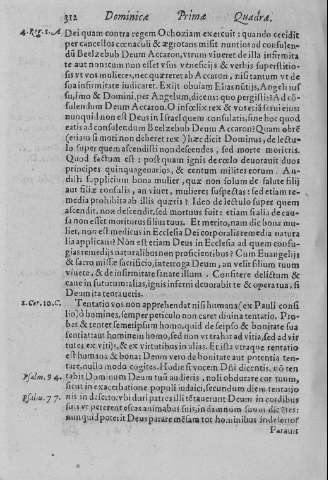 312 Dominicæ Primæ Quadræ.
4. Reg. 1. A. Dei quam contra regem Ochoziam exercuit: quando cecidit
per cancellos cœnaculi & ægrotans misit nuntios ad consulen-
dũ Beelzebub Deum Accaron, vtrum viueret de illa infirmita
te aut non: cum non esset vsus veneficijs & verbis superstitio
sis vt viueret, nec quæreret ab Accaron, nisi tantum vt de
sua infirmitate iudicaret. Exijt obuiam Elias nũtijs, Angeli ius
su, imo & Domini, per Angelum, dicens: quo pergitis? Ad cõ-
sulendum Deum Accaron. O infelix rex &
nunquid non est Deus in Israel quem consulatis, sine hoc quod
eatis ad consulendum Beelzebub Deum Accaron? Quam obrẽ
(etiam si mori non deberet rex) hæc dicit Dominus, de lectu-
lo super quem ascendisti non descendes, sed morte morieris.
Quod factum est: postquam ignis de cœlo deuorauit duos
principes quinquagenarios, & centum milites eorum. Au-
disti supplicium bona mulier, quæ non solum de salute filij
aut filiæ consulis, an viuet, mulieres suspectas: sed etiam re-
media prohibita ab illis quæris? Ideo de lectulo super quem
ascendit, non descendit, sed mortuus fuit: etiam filia de cau-
sa non esset moritura filius tuus. Et merito, nam dic bona mu-
lier, non est medicus in Ecclesia Dei corporalis remedia natura
lia applicans? Non est etiam Deus in Ecclesia ad quem confu-
gias remedijs naturalibus non proficientibus? Cum Euangelijs
& sacro missæ sacrificio, interroga Deum, an velit filium tuum
viuere, & de infirmitate sanare illum. Confitere delictum &
caue in futurum: alias, ignis inferni deuorabit te & operatua, si
Deum ita tentaueris.
1. Cor. 10. C. Tentatio vos non apprehendat nisi humana (ex Pauli consi
lio) ô homines, semper periculo non caret diuina tentatio. Pro-
bat & tentet semetipsum homo, quid de seipso & bonitate sua
sentiat aut hominem homo, sed non vt trahat ad vitia, sed ad vir
tutes ex vitijs, & ex virtutibus in alias. Et ista vtraque tentatio
est humana & bona: Deum vero de bonitate aut potentia ten-
tare, nullo modo cogites. Hodie si vocem Dñi dicentis, nõ ten
Psalm. 94. tabis Dominum Deum tuũ audieris, noli obdurare cor tuum,
sicut in exacerbatione populi iudaici, secundum diem tentatio
Psalm. 77. nis in deserto, vbi duri patres illi tẽtauerunt Deum in cordibus
suis vt peterent escas animabus suis, in damnum suum dicẽtes:
nunquid poterit Deus parare mẽsam tot hominibus in deserto?
Parauit